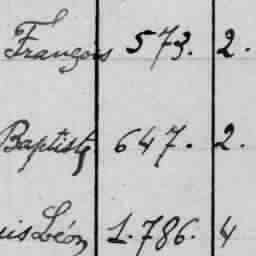 François 573. 2.
Baptiste 647. 2.
uis Léon 1.786. 4